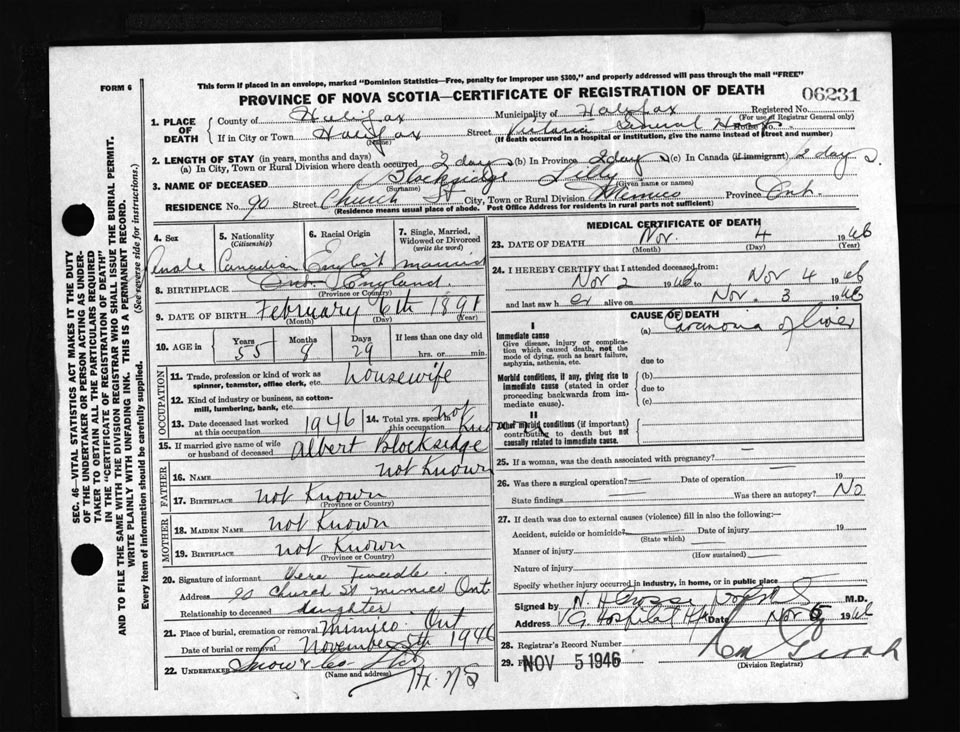 FORM 6
This form if placed in an envelope, marked "Dominion Statistics—Free, penalty for improper use $300," and properly addressed will pass through the mail "FREE"
PROVINCE OF NOVA SCOTIA—CERTIFICATE OF REGISTRATION OF DEATH 06231
1. PLACE OF DEATH County of Halifax Municipality of Halifax Registered No.
(For use of Registrar General only)
If in City or Town Halifax Street Victoria General Hosp. House No.
(Name) (If death occurred in a hospital or institution, give the name instead of street and number)
2. LENGTH OF STAY (in years, months and days)
(a) In City, Town or Rural Division where death occurred 2 days (b) In Province 2 days (c) In Canada (if immigrant) 2 days.
3. NAME OF DECEASED Blocksidge Lilly
(Surname) (Given name or names)
RESIDENCE No. 90 Street Church St City, Town or Rural Division Mimico Province Ont.
(Residence means usual place of abode. Post Office Address for residents in rural parts not sufficient)
4. Sex 5. Nationality (Citizenship) 6. Racial Origin 7. Single, Married, Widowed or Divorced (write the word)
Canadian English married
8. BIRTHPLACE England.
(Province or Country)
9. DATE OF BIRTH February 6th 1891
(Month) (Day) (Year)
10. AGE in Years Months Days If less than one day old
55 8 29 hrs. or min.
OCCUPATION
11. Trade, profession or kind of work as spinner, teamster, office clerk, etc. housewife
12. Kind of industry or business, as cotton-mill, lumbering, bank, etc.
13. Date deceased last worked at this occupation 1946 14. Total yrs. spent in this occupation not
15. If married give name of wife or husband of deceased Albert Blocksidge
FATHER
16. NAME not Known
17. BIRTHPLACE not Known
(Province or Country)
MOTHER
18. MAIDEN NAME not Known
19. BIRTHPLACE not Known
(Province or Country)
20. Signature of informant Vera
Address 90 Church St mimico Ont
Relationship to deceased daughter
21. Place of burial, cremation or removal Mimico Ont
Date of burial or removal November 5th 1946
22. UNDERTAKER Snow & Co Ltd
(Name and address)
Hx. NS
MEDICAL CERTIFICATE OF DEATH
23. DATE OF DEATH Nov. 4 1946
(Month) (Day) (Year)
24. I HEREBY CERTIFY that I attended deceased from:
Nov 2 1946 to Nov 4 1946
and last saw her alive on Nov. 3 1946
CAUSE OF DEATH
I
Immediate cause (a) Carcinoma of liver
Give disease, injury or complication which caused death, not the mode of dying, such as heart failure, asphyxia, asthenia, etc.
due to
Morbid conditions, if any, giving rise to immediate cause (stated in order proceeding backwards from immediate cause).
(b)
due to
(c)
II
Other morbid conditions (if important) contributing to death but not causally related to immediate cause.
25. If a woman, was the death associated with pregnancy?
26. Was there a surgical operation? Date of operation 19
State findings Was there an autopsy? No
27. If death was due to external causes (violence) fill in also the following:—
Accident, suicide or homicide? Date of injury 19
(State which)
Manner of injury
(How sustained)
Nature of injury
Specify whether injury occurred in industry, in home, or in public place
Signed by M.D.
Address V.G. Hospital Hfx Date Nov 5 1946
28. Registrar's Record Number
29. NOV 5 1946
(Division Registrar)
SEC. 46—VITAL STATISTICS ACT MAKES IT THE DUTY
OF THE UNDERTAKER OR PERSON ACTING AS UNDERTAKER TO OBTAIN ALL THE PARTICULARS REQUIRED
IN THE "CERTIFICATE OF REGISTRATION OF DEATH"
AND TO FILE THE SAME WITH THE DIVISION REGISTRAR WHO SHALL ISSUE THE BURIAL PERMIT.
WRITE PLAINLY WITH UNFADING INK. THIS IS A PERMANENT RECORD.
(See reverse side for instructions.)
Every item of information should be carefully supplied.